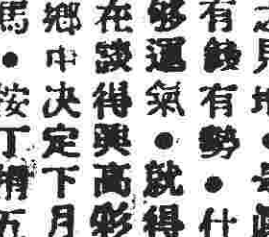 有錢有勢●仕
够運氣●就得
在談得興高彩
鄉中決定下月
馬●按丁捐五